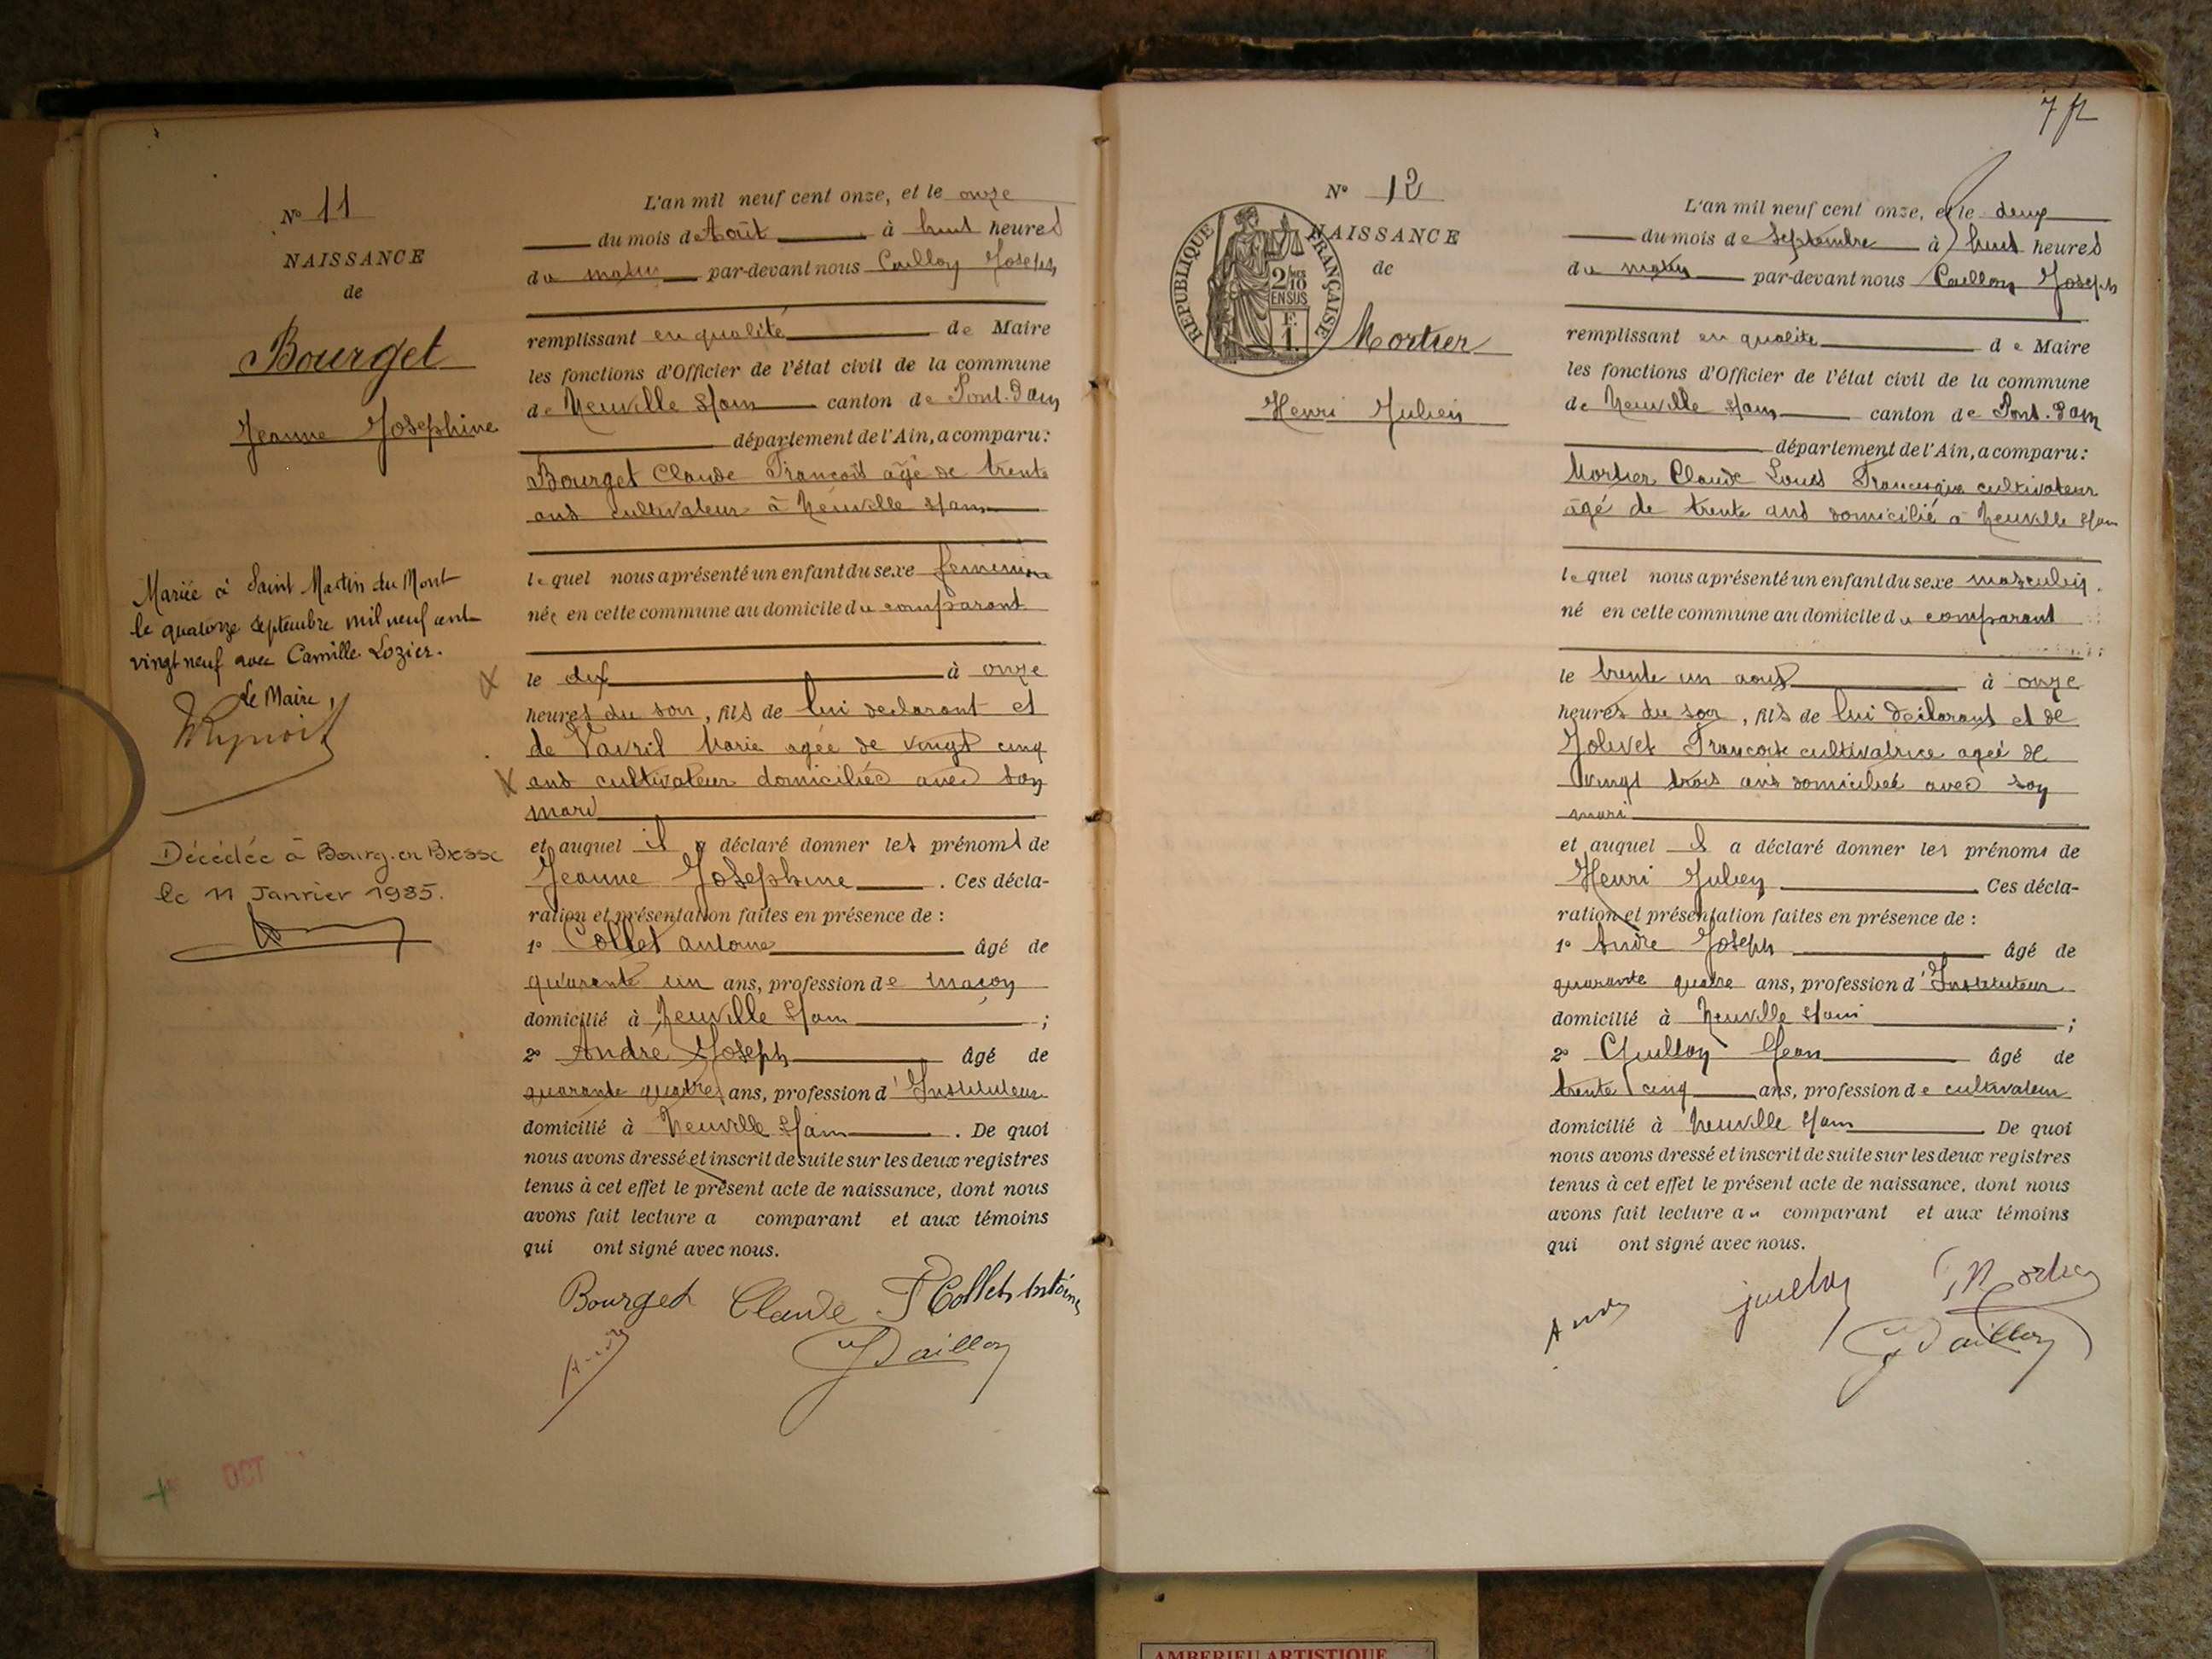 N° 11
NAISSANCE
de
Bourget
Jeanne Josephine
Mariée à Saint Martin du Mont
le quatorze septembre mil neuf cent
vingt neuf avec Camille Lozier.
Le Maire,
Décédée à Bourg-en-Bresse
le 11 Janvier 1985.
OCT
L'an mil neuf cent onze, et le onze
du mois de Août à huit heures
du matin par-devant nous Joseph
remplissant en qualité de Maire
les fonctions d'Officier de l'état civil de la commune
de Neuville s/ain canton de Pont-d'ain
département de l'Ain, a comparu:
Bourget Claude François âgé de trente
ans cultivateur à Neuville s/ain
lequel nous a présenté un enfant du sexe feminin
née en cette commune au domicile du comparant
le dix à onze
heures du soir, fils de lui declarant et
de Vavril Marie agée de vingt cinq
ans cultivateur domiciliée avec son
mari
et auquel il a déclaré donner les prénoms de
Jeanne Josephine. Ces décla-
ration et présentation faites en présence de :
1° Collet antoine âgé de
quarante un ans, profession de maçon
domicilié à Neuville s/ain ;
2° André Joseph âgé de
quarante quatre ans, profession d'Instituteur
domicilié à Neuville s/ain. De quoi
nous avons dressé et inscrit de suite sur les deux registres
tenus à cet effet le présent acte de naissance, dont nous
avons fait lecture a comparant et aux témoins
qui ont signé avec nous.
Bourget Claude F Collet Antoine
7
N° 12
NAISSANCE
de
RÉPUBLIQUE FRANÇAISE
2/10
EN SUS
F.
1.
Mortier
Henri Julien
L'an mil neuf cent onze, et le deux
du mois de Septembre à huit heures
du matin par-devant nous Joseph
remplissant en qualité de Maire
les fonctions d'Officier de l'état civil de la commune
de Neuville s/ain canton de Pont-d'ain
département de l'Ain, a comparu:
Mortier Claude Louis cultivateur
âgé de trente ans domicilié à Neuville s/ain
lequel nous a présenté un enfant du sexe masculin.
né en cette commune au domicile du comparant
le trente un aout à onze
heures du soir, fils de lui declarant et de
Jolivet Françoise cultivatrice agée de
vingt trois ans domiciliée avec son
mari
et auquel il a déclaré donner les prénoms de
Henri Julien Ces décla-
ration et présentation faites en présence de :
1° André Joseph âgé de
quarante quatre ans, profession d'Instituteur
domicilié à Neuville s/ain ;
2° Jean âgé de
trente cinq ans, profession de cultivateur
domicilié à Neuville s/ain De quoi
nous avons dressé et inscrit de suite sur les deux registres
tenus à cet effet le présent acte de naissance, dont nous
avons fait lecture au comparant et aux témoins
qui ont signé avec nous.
Mortier
AMBERIEU ARTISTIQUE